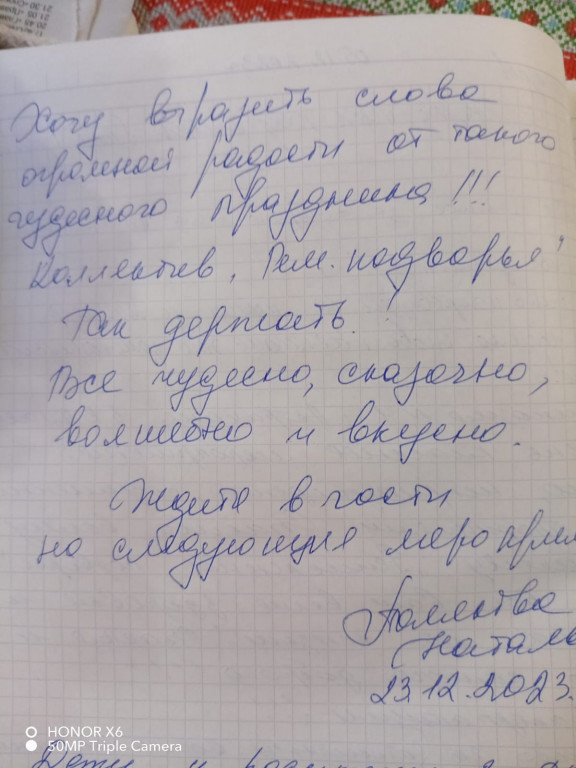 Хочу выразить слова
огромной радости от такого
чудесного праздника!!!
Коллектив "Рем. подворья"
Так держать!
Все чудесно, сказочно,
волшебно и вкусно.
Ждите в гости
на следующие мероприя
Натал
23.12.2023.
HONOR X6
50MP Triple Camera